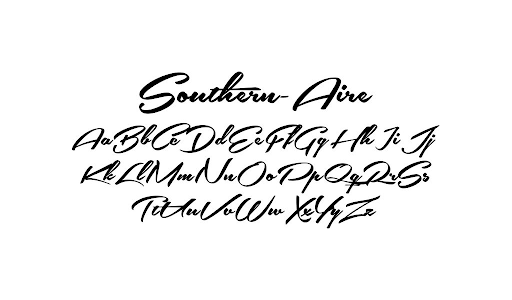 Southern-Aire
AaBbCcDdEeFfGgHhIiJj
KkLlMmNnOoPpQqRrSs
TtUuVvWwXxYyZz